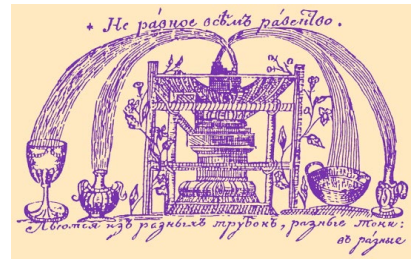 + Не ра́вное всѣ́мъ ра́венство.
Лью́тся изъ ра́зныхъ трубокъ, ра́зныe токи:
въ ра́зные